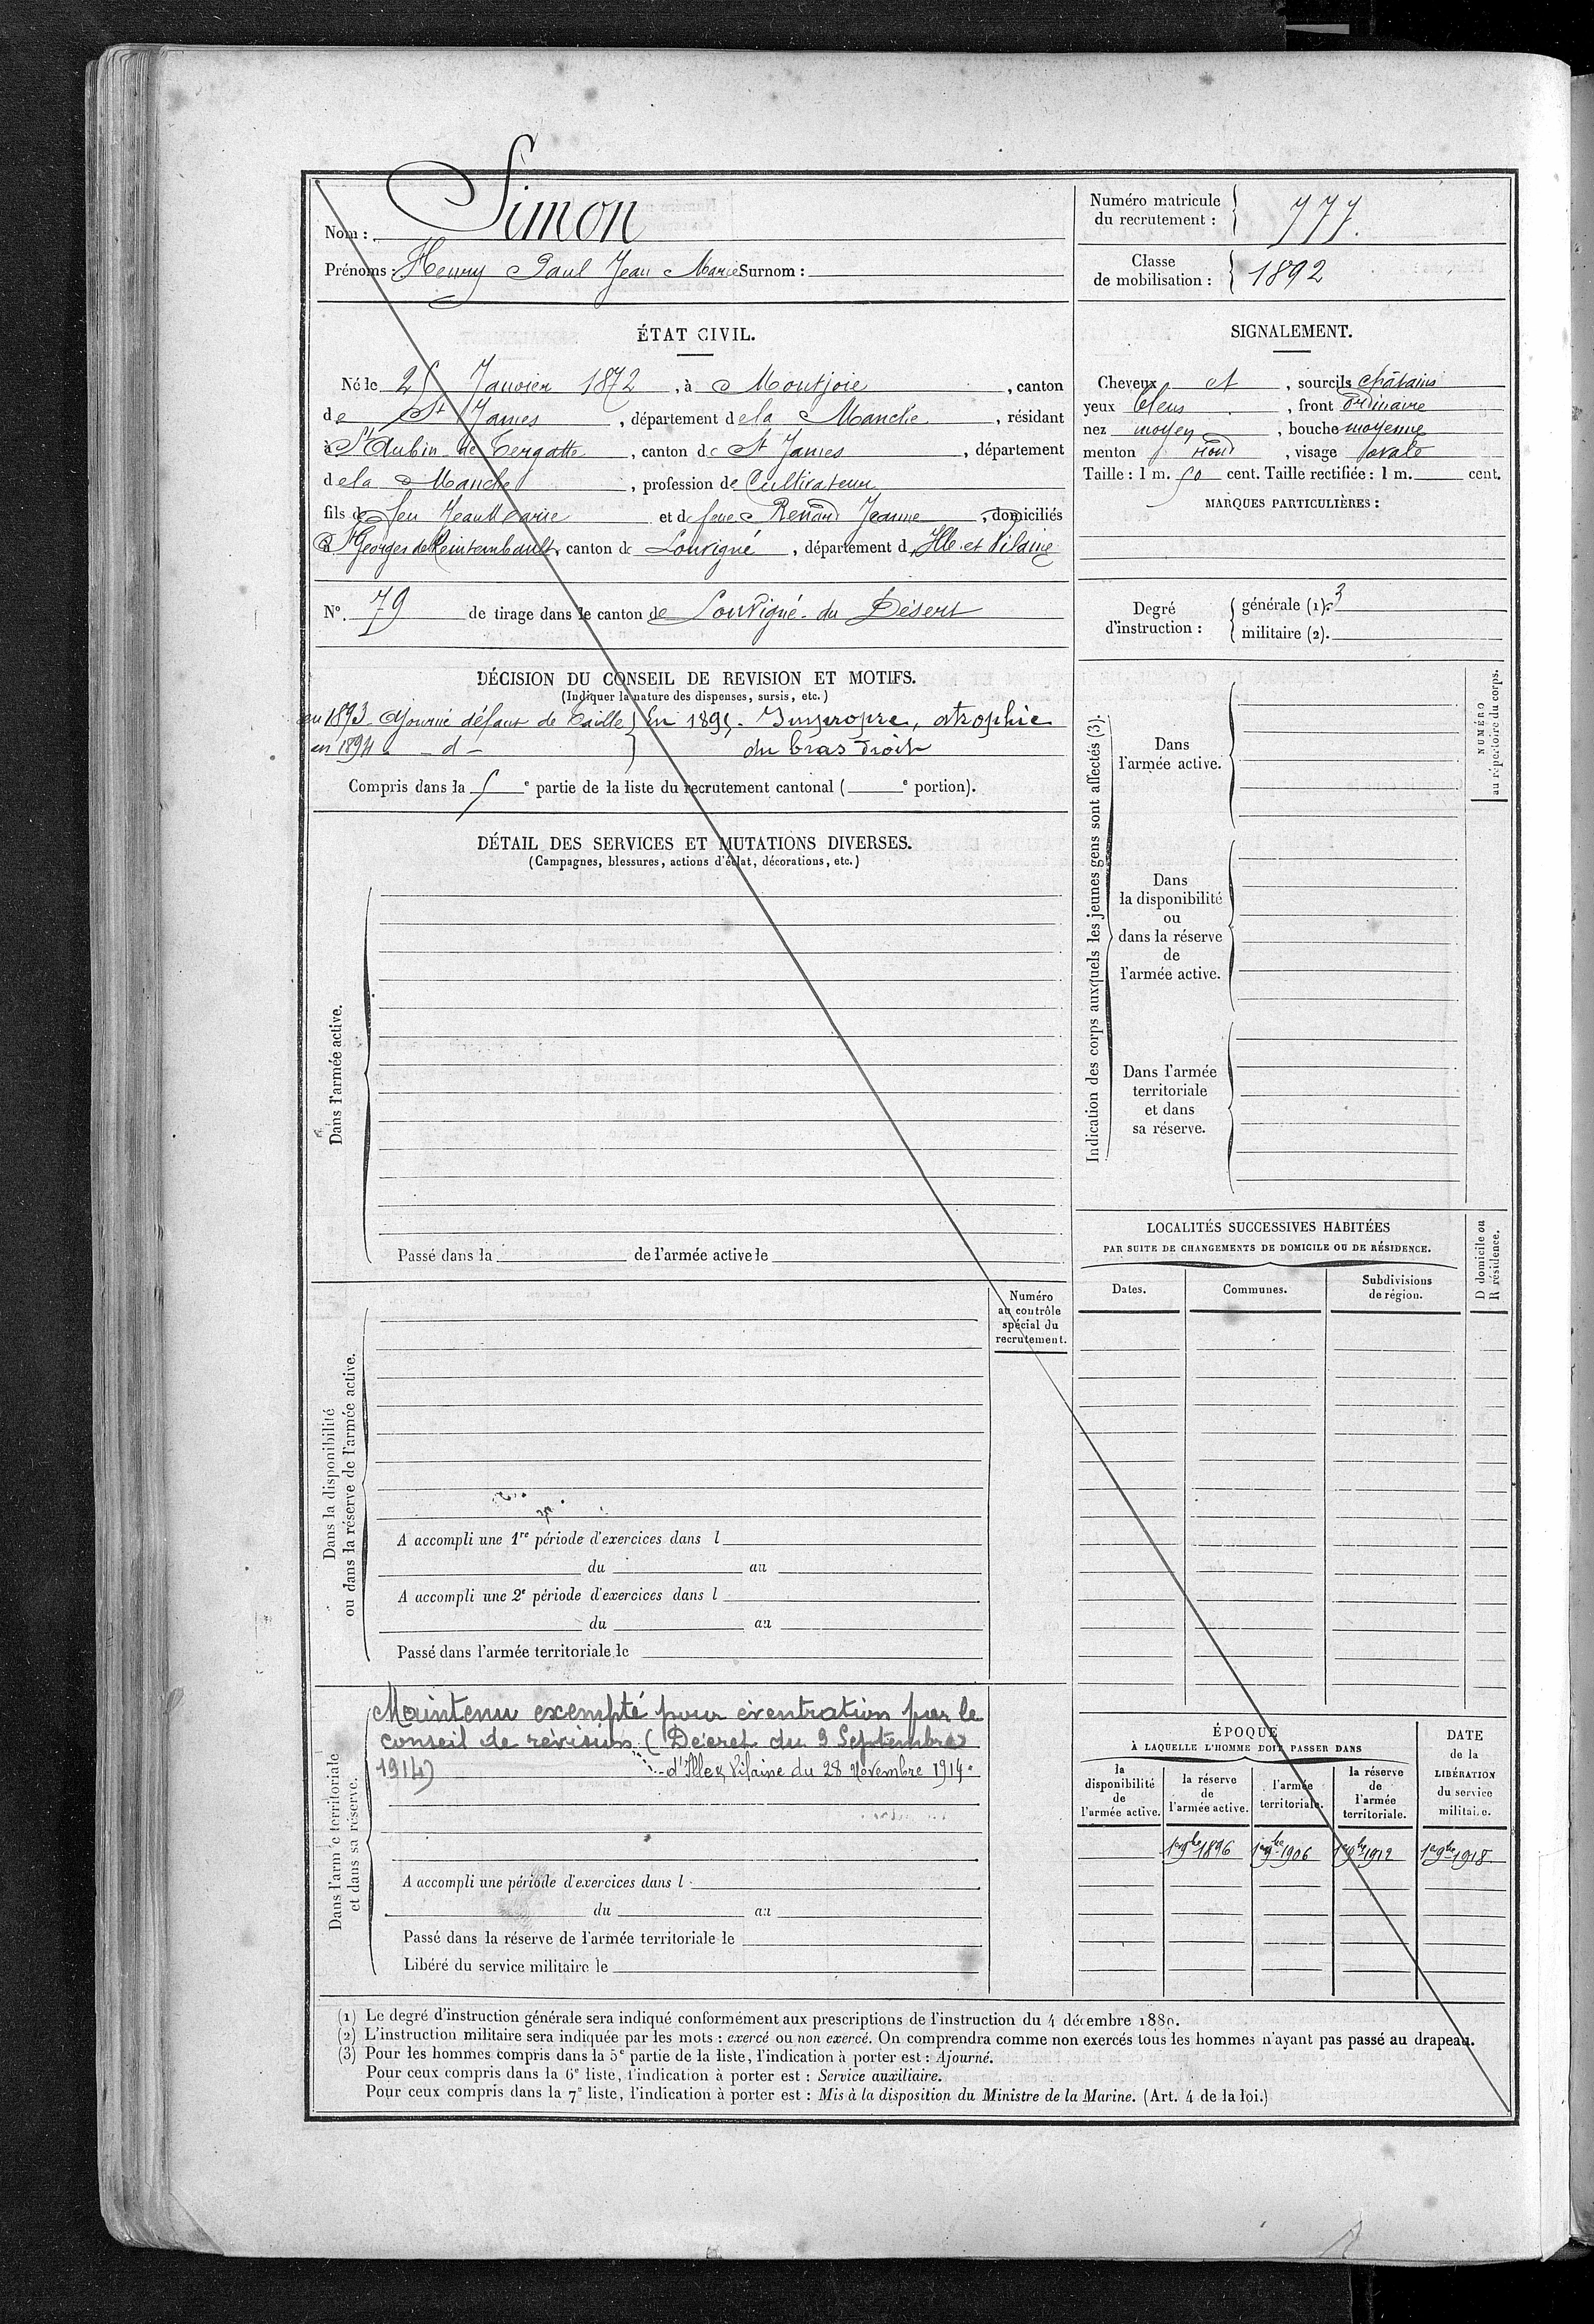 Nom : Simon
Prénoms : Henry Paul Jean Marie Surnom :
Numéro matricule du recrutement : 777.
Classe de mobilisation : 1892
ÉTAT CIVIL.
Né le 25 Janvier 1872, à Montjoie, canton
de St James, département de la Manche, résidant
à St Aubin de Tergatte, canton de St James, département
de la Manche, profession de Cultivateur
fils de feu Jean Marie et de feue Renard Jeanne, domiciliés
à St Georges de Reintembault, canton de Louvigné, département d'Ille et Vilaine
N°. 79 de tirage dans le canton de Louvigné-du Désert
SIGNALEMENT.
Cheveux et, sourcils châtains
yeux bleus, front ordinaire
nez moyen, bouche moyenne
menton rond, visage ovale
Taille : 1 m. 50 cent. Taille rectifiée : 1 m. cent.
MARQUES PARTICULIÈRES :
Degré d'instruction : générale (1). 3
militaire (2).
DÉCISION DU CONSEIL DE REVISION ET MOTIFS.
(Indiquer la nature des dispenses, sursis, etc.)
en 1893 Ajourné défaut de taille } En 1895. Impropre, atrophie
en 1894 - d - } du bras droit
Compris dans la 5e partie de la liste du recrutement cantonal ( e portion).
DÉTAIL DES SERVICES ET MUTATIONS DIVERSES.
(Campagnes, blessures, actions d'éclat, décorations, etc.)
Dans l'armée active.
Passé dans la de l'armée active le
Indication des corps auxquels les jeunes gens sont affectés (3).
Dans
l'armée active.
Dans
la disponibilité
ou
dans la réserve
de
l'armée active.
Dans l'armée
territoriale
et dans
sa réserve.
NUMÉRO
au répertoire du corps.
LOCALITÉS SUCCESSIVES HABITÉES
PAR SUITE DE CHANGEMENTS DE DOMICILE OU DE RÉSIDENCE.
Dates. Communes. Subdivisions de région.
D domicile ou
R résidence.
Numéro
au contrôle
spécial du
recrutement.
Dans la disponibilité
ou dans la réserve de l'armée active.
A accompli une 1re période d'exercices dans l
du au
A accompli une 2e période d'exercices dans l
du au
Passé dans l'armée territoriale le
Dans l'armée territoriale
et dans sa réserve.
Maintenu exempté pour éventration par le
conseil de révision (Décret du 9 Septembre
1914) d'Ille & Vilaine du 28 Novembre 1914.
A accompli une période d'exercices dans l
du au
Passé dans la réserve de l'armée territoriale le
Libéré du service militaire le
ÉPOQUE
À LAQUELLE L'HOMME DOIT PASSER DANS
la
disponibilité
de
l'armée active.
la réserve
de
l'armée active.
l'armée
territoriale.
la réserve
de
l'armée
territoriale.
DATE
de la
LIBÉRATION
du service
militaire.
1er 9bre 1896 1er 9bre 1906 1er 9bre 1912 1er 9bre 1918
(1) Le degré d'instruction générale sera indiqué conformément aux prescriptions de l'instruction du 4 décembre 1889.
(2) L'instruction militaire sera indiquée par les mots : exercé ou non exercé. On comprendra comme non exercés tous les hommes n'ayant pas passé au drapeau.
(3) Pour les hommes compris dans la 5e partie de la liste, l'indication à porter est : Ajourné.
Pour ceux compris dans la 6e liste, l'indication à porter est : Service auxiliaire.
Pour ceux compris dans la 7e liste, l'indication à porter est : Mis à la disposition du Ministre de la Marine. (Art. 4 de la loi.)